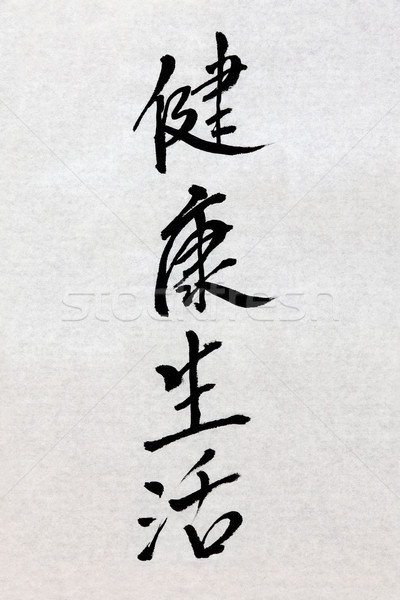 健康生活
stockfresh